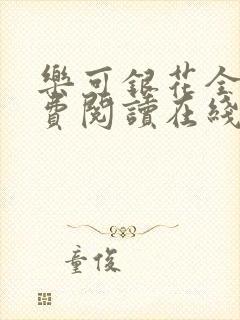 樂可銀花全
費閱讀在綫
童俊